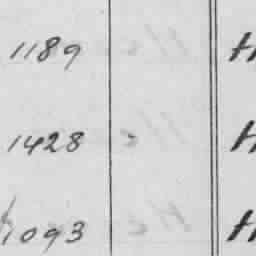 1189 H
1428 " H
1093 H